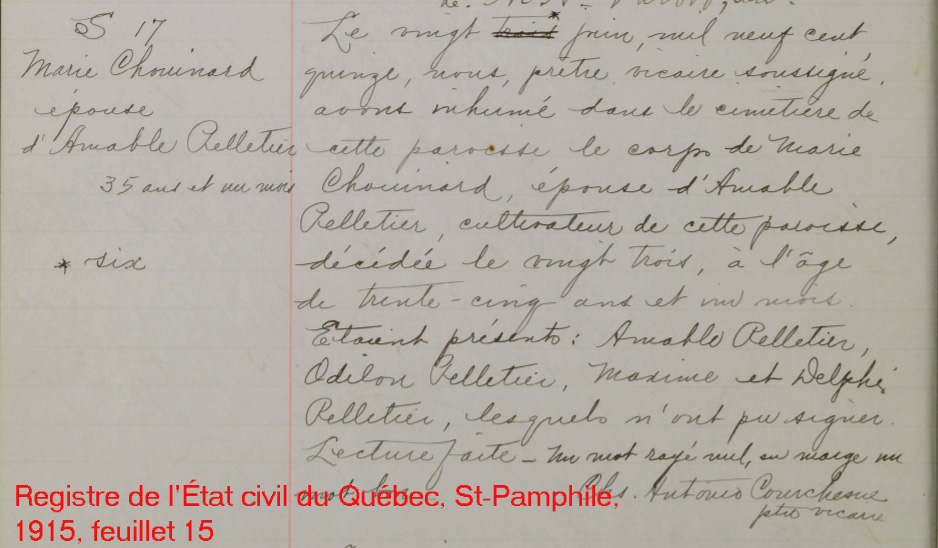 S 17
Marie Chouinard
épouse
d'Amable Pelletier
35 ans et un mois
* six
Le vingt trois* juin, mil neuf cent
quinze, nous, prêtre vicaire soussigné,
avons inhumé dans le cimetière de
cette paroisse le corps de Marie
Chouinard, épouse d'Amable
Pelletier, cultivateur de cette paroisse,
décédée le vingt trois, à l'âge
de trente-cinq ans et un mois.
Etaient présents: Amable Pelletier,
Odilon Pelletier, Maxime et Delphis
Pelletier, lesquels n'ont pu signer.
Lecture faite – Un mot rayé nul, en marge un
mot bon. Chs. Antonio Courchesne
ptre vicaire
Registre de l'État civil du Québec, St-Pamphile,
1915, feuillet 15